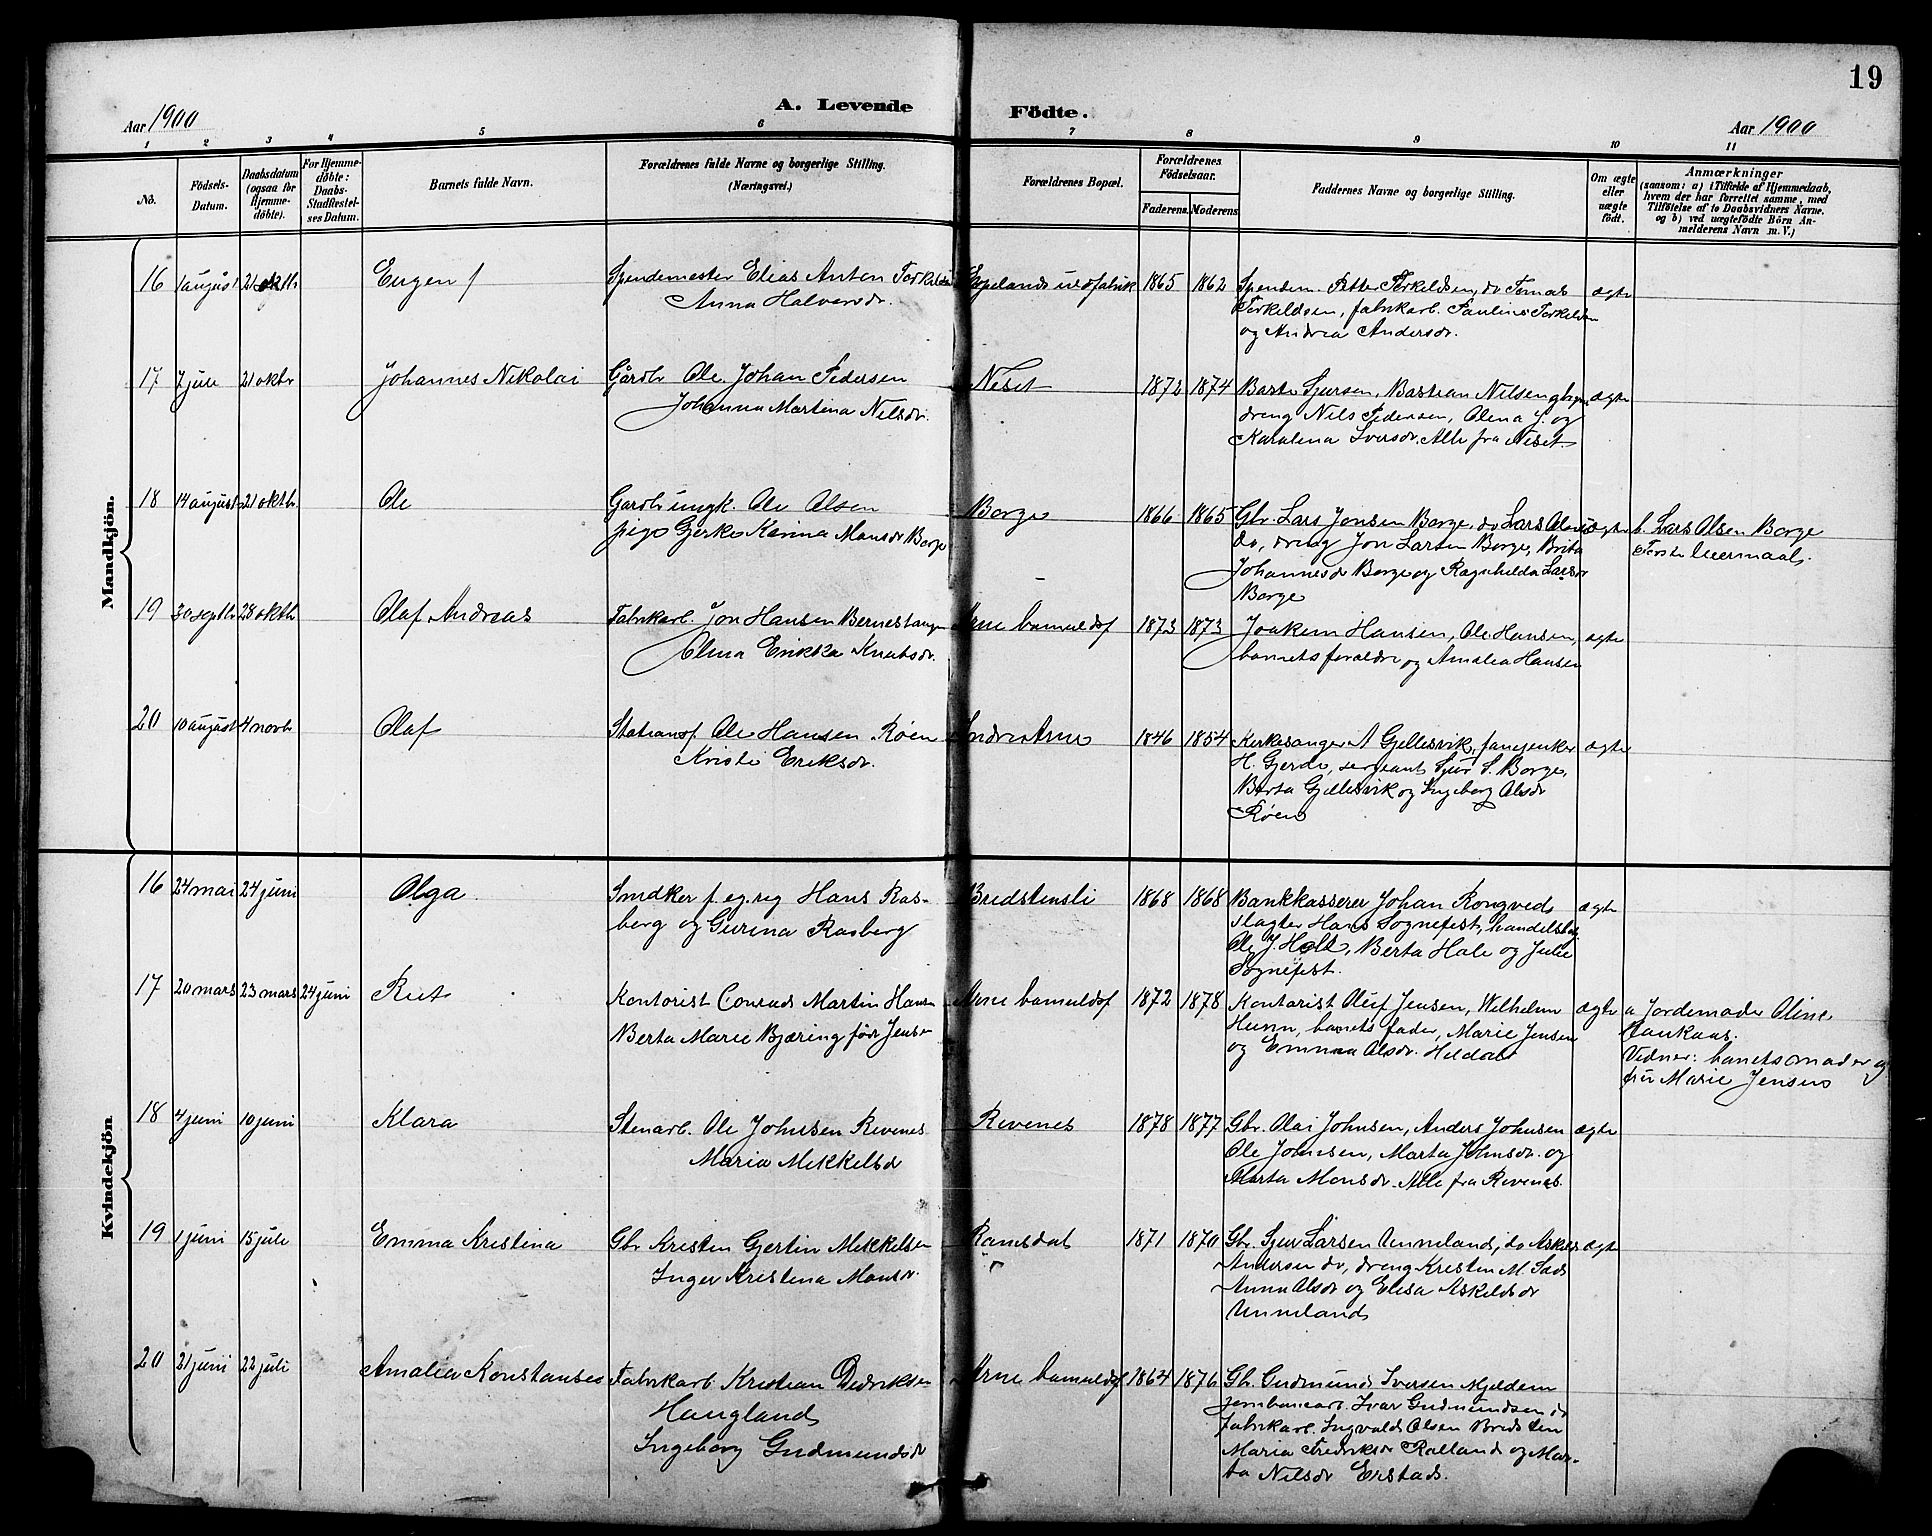 19
A. Levende Födte.
Aar 1900
Aar 1900
1 2 3 4 5 6 7 8 9 10 11
No.
Födsels-Datum.
Daabsdatum (ogsaa for Hjemme-döbte).
For Hjemme-döbte: Daabs-Stadfæstel-ses Datum.
Barnets fulde Navn.
Forældrenes fulde Navne og borgerlige Stilling. (Næringsvei.)
Forældrenes Bopæl.
Forældrenes Födselsaar.
Faderens. Moderens.
Faddernes Navne og borgerlige Stilling.
Om ægte eller uægte födt.
Anmærkninger
(saasom: a) i Tilfælde af Hjemmedaab,
hvem der har forrettet samme, med
Tilföielse af to Daabsvidners Navne,
og b) ved uægtefödte Börn An-
melderens Navn m. V.)
Mandkjön.
16 1 august 21 oktb Eugen Spendemester Elias Anton Torkildsen 1865 1862 Spendem. Petter Torkildsen, do Tomas ægte
Anna Halvorsdr. Torkildsen, fabrikarb. Pauline Torkildsen
og Andrea Andersdr.
17 7 jule 21 oktbr Johannes Nikolai Gårdbr Ole Johan Pedersen Neset 1872 1874 Sjursen, Bastian Nilsen ægte
Johanna Martina Nelsdr. dreng Nils Pedersen, Olena J. og
Karalena Iversdr. Alle fra Neset.
18 14 august 21 oktb. Ole Gardbr ungk. Ole Olsen Borge 1866 1865 Gbr. Lars Jonsen Borge, do Lars Olsen uægte b. Lars Olsen Borge
pige Gjerke Karina Monsdr Borge do, dreng Jon Larsen Borge, Brita Første leiermaal.
Johannesdr Borge og Ragnhilda Larsdr
Borge
19 30 septbr 28 oktb Olaf Andreas Fabrikarb. Jon Hansen Bernestangen Arne bomuldsf 1873 1873 Joakim Hansen, Ole Hansen, ægte
Olina Erikka Knutsdr. barnets forældre og Amalia Hansen
20 10 august 4 novb Olaf Stationsf Ole Hansen Røen Indre Arne 1846 1854 Kirkesanger A Gjellesvik, fanejunker ægte
Kristi Eriksdr. H. Gjerde, sergeant Sjur S. Borge,
Berta Gjellesvik og Ingeborg Olsdr
Røen
Kvindekjön
16 24 mai 24 juni Olga Snedker f. eg. reg Hans Ras- Bredstensli 1868 1868 Bankkasserer Johan Rongved ægte
berg og Gurina Rasberg slagter Hans Sognefest, handelsb.
Ole J. Holt, Berta Hole og Julie
Sognefest.
17 20 mars 23 mars 24 juni Rut Kontorist Conrad Martin Hansen Arne bomuldsf 1872 1878 Kontorist Oluf Jensen, Wilhelm ægte a Jordemoder Oline
Berta Marie Bjæring født Jensen Hunn, barnets fader, Marie Jensen Haukaas.
og Emma Olsdr. Heldal Vidner: barnets moder og
fru Marie Jensen
18 4 juni 10 juni Klara Stenarb. Ole Johnsen Revenes Revenes 1878 1877 Gbr. Olai Johnsen, Anders Johnsen ægte
Maria Mekkelsdr Ole Johnsen, Marta Johnsdr. og
Marta Monsdr. Alle fra Revenes.
19 1 juni 15 jule Emma Kristina Gbr Kristen Gjertin Mikkelsen Ramsdal 1871 1870 Gbr. Sjur Larsen Unneland, do Askild ægte
Inger Kristina Monsdr. Andersen do, dreng Kristen M.
Anna Olsdr og Elisa Askildsdr
Unneland
20 21 juni 22 juli Amalia Konstanse Fabrikarb Kristian Didriksen Arne bomuldsf 1864 1876 Gb. Gudmund Iversen Mjeldem
Haugland jernbanearb. Ivar Gudmundsen do
Ingeborg Gudmundsdr fabrikarb. Ingvald Olsen Bredsten
Maria Fredriksdr Rølland og Mar-
ta Nilsdr Erstad.